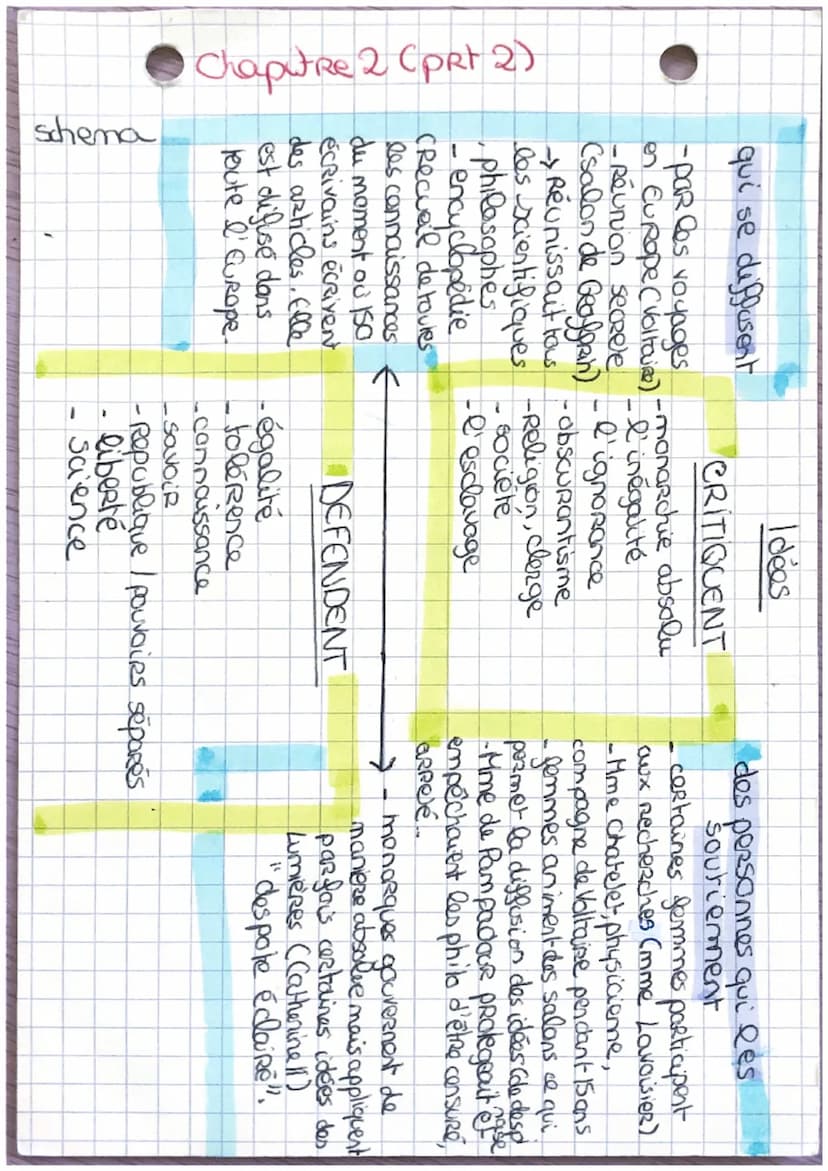 Chapitre 2 (pRt 2)
schema
Idées
qui se diffusent
- par les voyages
en Europe (Voltaire)
- Réunion secrète
(salon de Geoffrin)
→ Réunissait tous
les scientifiques
, philosophes
- encyclopédie
(Recueil de toutes
les connaissances
du moment où 150
écrivains écrivent
des articles. Elle
est diffusé dans
toute l'Europe.
CRITIQUENT
- monarchie absolu
- l'inégalité
- l'ignorance
- obscurantisme
- Religion, clergé
- société
- l'esclavage
DEFENDENT
- égalité
- tolérence
- connaissance
- savoir
- République / pouvoirs séparés
- liberté
- science
des personnes qui les
soutiennent
- certaines femmes participent
aux recherches (mme Lavoisier)
- Mme Chatelet, physicienne,
compagne de Voltaire pendant 15 ans
- femmes animent des salons ce qui
permet la diffusion des idées
- Mme de Pampadour protegeait et
empêchaient les philo d'être censuré,
arrêté...
- monarques gouvernent de
manière absolue mais appliquent
parfois certaines idées des
Lumières ((Catherine II)
"despote éclairé".